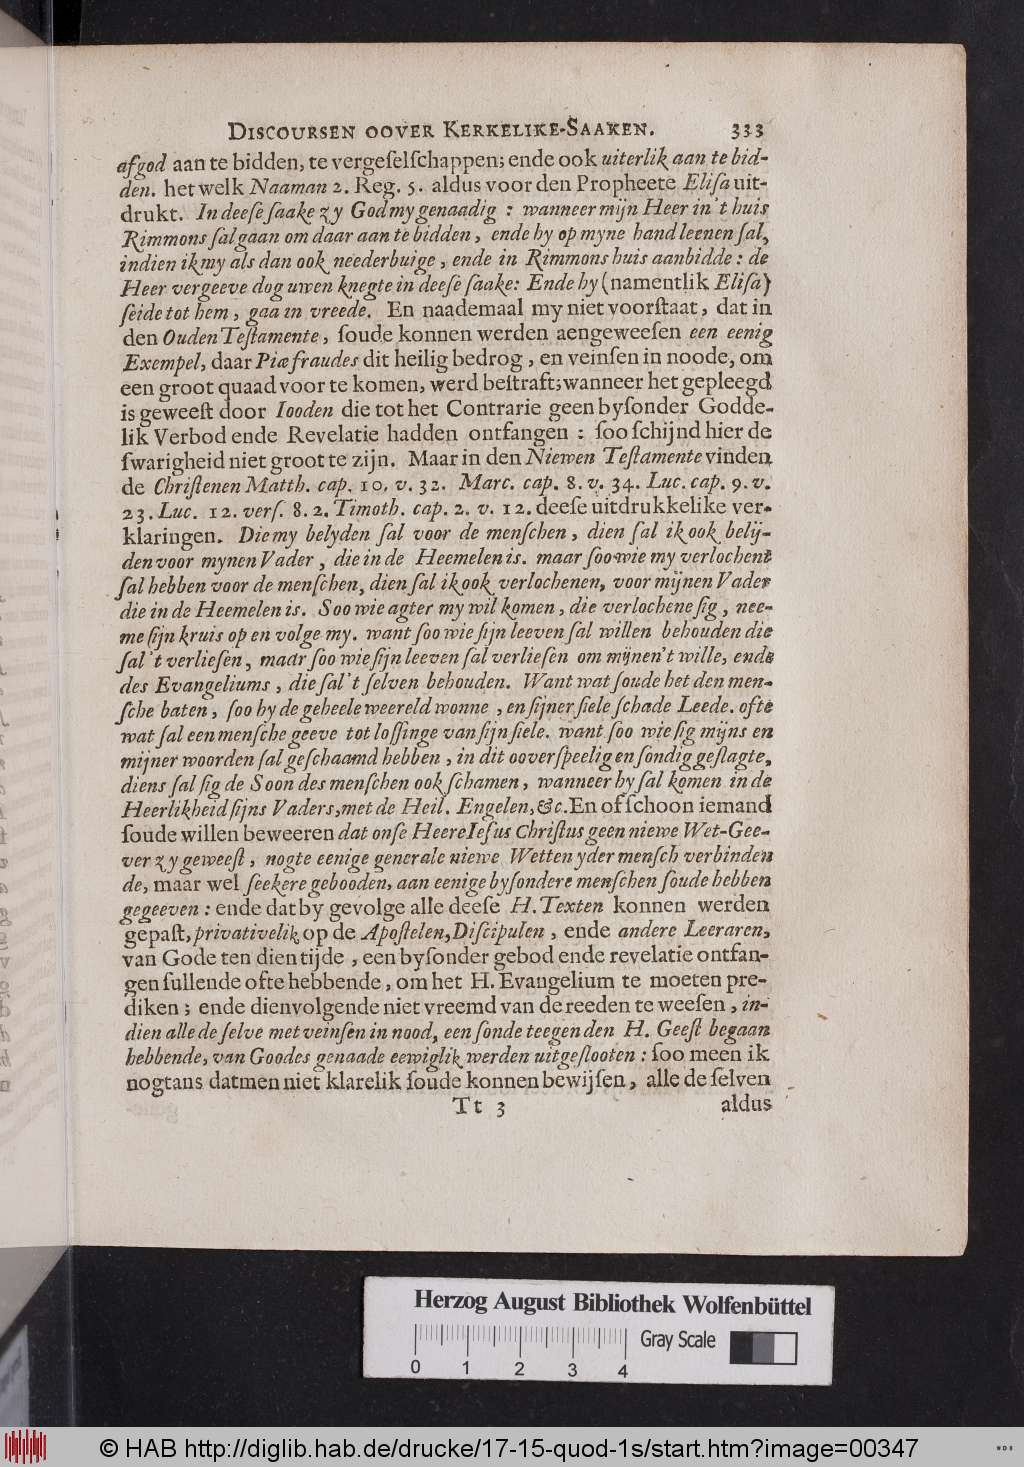 DISCOURSEN OOVER KERKELIKE-SAAKEN. 333
afgod aan te bidden, te vergeſelſchappen; ende ook uiterlik aan te bid-
den. het welk Naaman 2. Reg. 5. aldus voor den Propheete Eliſa uit-
drukt. In deeſe ſaake zy God my genaadig : wanneer mijn Heer in 't huis
Rimmons ſal gaan om daar aan te bidden, ende hy op myne hand leenen ſal,
indien ik my als dan ook neederbuige, ende in Rimmons huis aanbidde : de
Heer vergeeve dog uwen knegte in deeſe ſaake: Ende hy (namentlik Eliſa)
ſeide tot hem, gaa in vreede. En naademaal my niet voorſtaat, dat in
den Ouden Teſtamente, ſoude konnen werden aengeweeſen een eenig
Exempel, daar Piæ fraudes dit heilig bedrog, en veinſen in noode, om
een groot quaad voor te komen, werd beſtraft; wanneer het gepleegd
is geweeſt door Iooden die tot het Contrarie geen byſonder Godde-
lik Verbod ende Revelatie hadden ontfangen : ſoo ſchijnd hier de
ſwarigheid niet groot te zijn. Maar in den Niewen Teſtamente vinden
de Chriſtenen Matth. cap. 10. v. 32. Marc. cap. 8. v. 34. Luc. cap. 9. v.
23. Luc. 12. verſ. 8. 2. Timoth. cap. 2. v. 12. deeſe uitdrukkelike ver-
klaringen. Die my belyden ſal voor de menſchen, dien ſal ik ook belij-
den voor mynen Vader, die in de Heemelen is. maar ſoo wie my verlochent
ſal hebben voor de menſchen, dien ſal ik ook verlochenen, voor mijnen Vader
die in de Heemelen is. Soo wie agter my wil komen, die verlochene ſig, nee-
me ſijn kruis op en volge my. want ſoo wie ſijn leeven ſal willen behouden die
ſal 't verlieſen, maar ſoo wie ſijn leeven ſal verlieſen om mijnen't wille, ende
des Evangeliums, die ſal 't ſelven behouden. Want wat ſoude het den men-
ſche baten, ſoo hy de geheele weereld wonne, en ſijner ſiele ſchade Leede. ofte
wat ſal een menſche geeve tot loſſinge van ſijn ſiele. want ſoo wie ſig mijns en
mijner woorden ſal geſchaamd hebben, in dit ooverſpeelig en ſondig geſlagte,
diens ſal ſig de Soon des menſchen ook ſchamen, wanneer hy ſal komen in de
Heerlikheid ſijns Vaders, met de Heil. Engelen, &c. En of ſchoon iemand
ſoude willen beweeren dat onſe Heere Ieſus Chriſtus geen niewe Wet-Gee-
ver zy geweeſt, nogte eenige generale niewe Wetten yder menſch verbinden
de, maar wel ſeekere gebooden, aan eenige byſondere menſchen ſoude hebben
gegeeven : ende dat by gevolge alle deeſe H. Texten konnen werden
gepaſt, privativelik op de Apoſtelen, Diſcipulen, ende andere Leeraren,
van Gode ten dien tijde, een byſonder gebod ende revelatie ontfan-
gen ſullende ofte hebbende, om het H. Evangelium te moeten pre-
diken ; ende dienvolgende niet vreemd van de reeden te weeſen, in-
dien alle de ſelve met veinſen in nood, een ſonde teegen den H. Geeſt begaan
hebbende, van Goodes genaade eewiglik werden uitgeſlooten : ſoo meen ik
nogtans dat men niet klarelik ſoude konnen bewijſen, alle de ſelven
Tt 3 aldus
Herzog August Bibliothek Wolfenbüttel
Gray Scale
0 1 2 3 4
© HAB http://diglib.hab.de/drucke/17-15-quod-1s/start.htm?image=00347